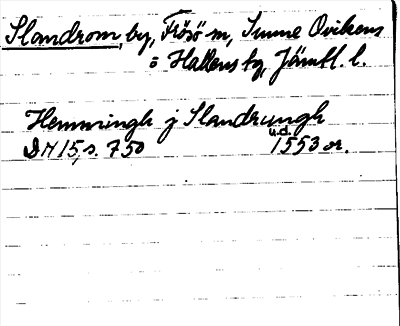 Slandrom, by, Frösö sn, Sunne Ovikens
o Hallens tg, Jämtl. l.
Hemmingh j Slandrungh
DN 15, s. 750 u.d. 1553 or.